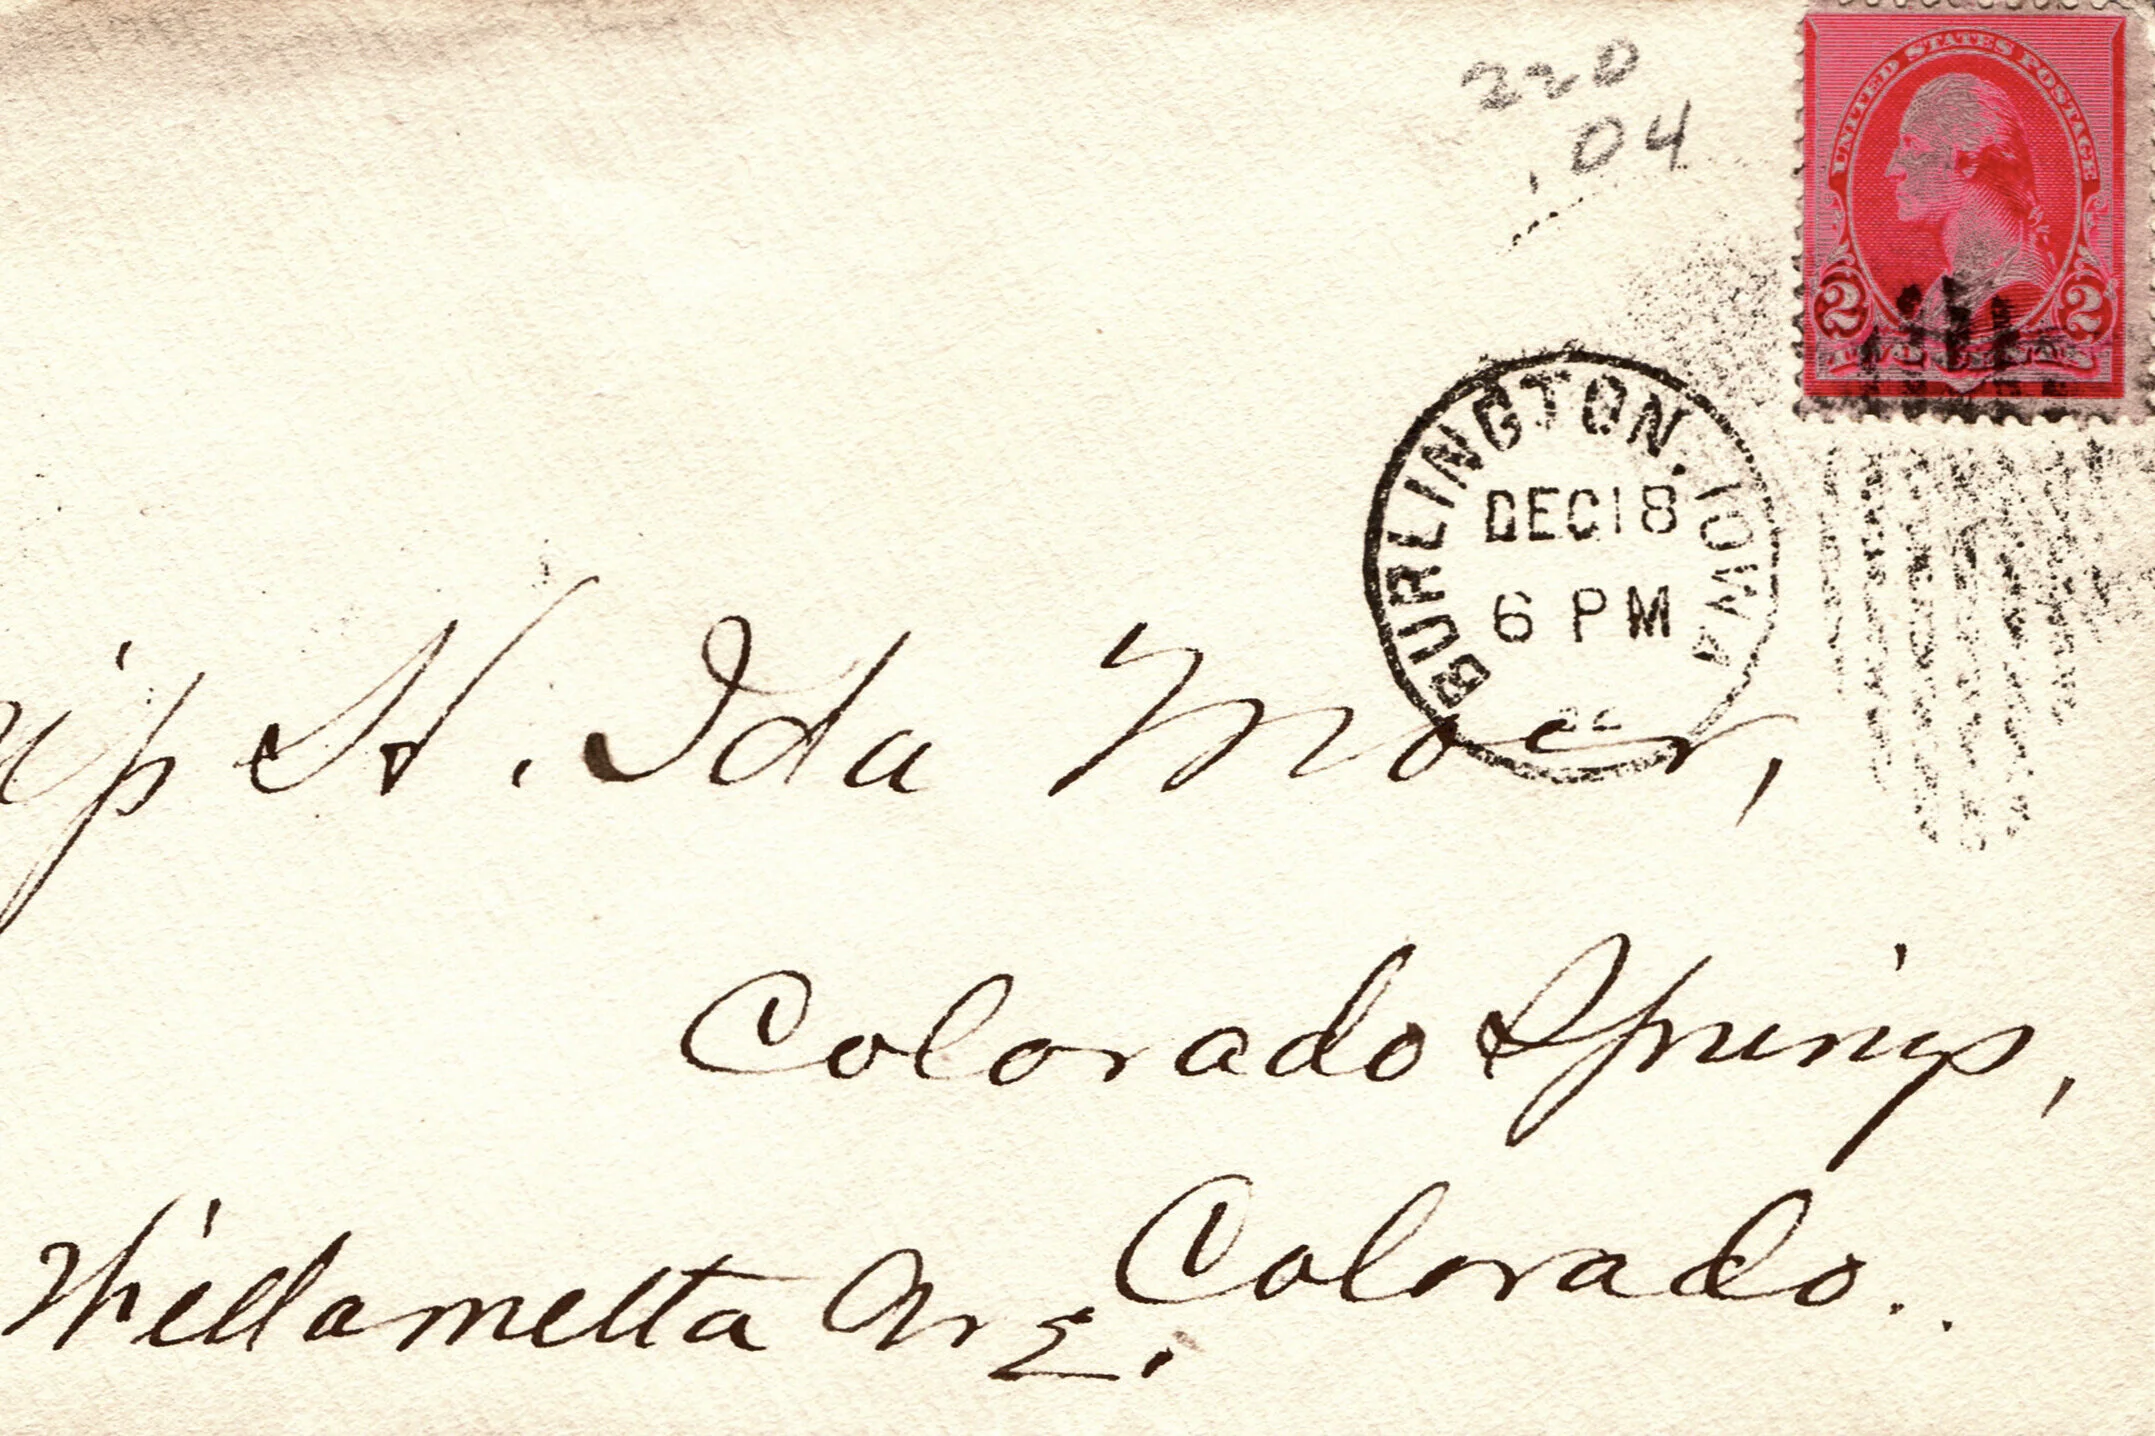 220
.04
UNITED STATES POSTAGE
2 2
BURLINGTON. IOWA
DEC 18
6 PM
H. Ida Moer,
Colorado Springs,
Colorado.
Willametta Ave.